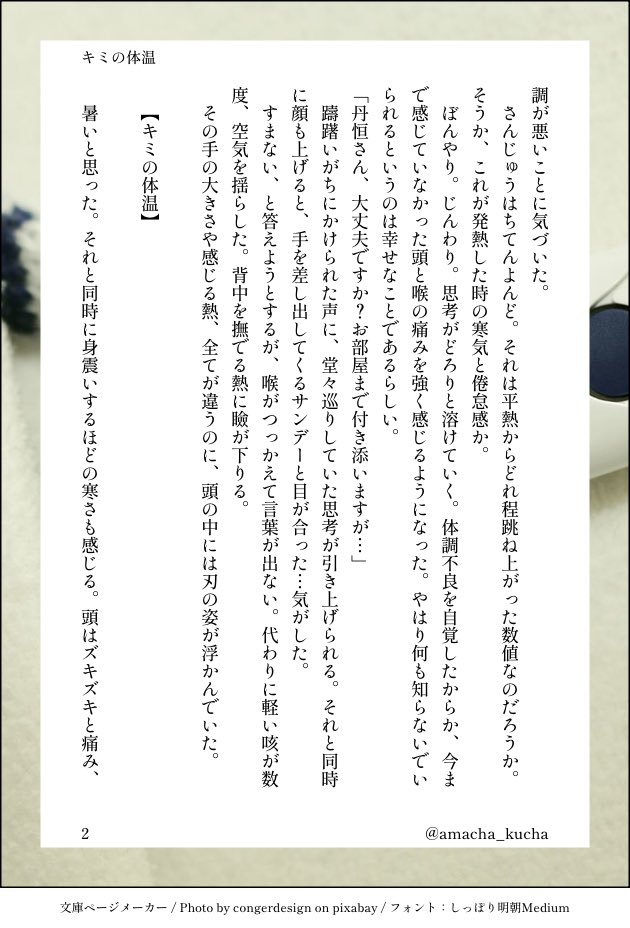 キミの体温
調が悪いことに気づいた。
さんじゅうはちてんよんど。それは平熱からどれ程跳ね上がった数値なのだろうか。
そうか、これが発熱した時の寒気と倦怠感か。
ぼんやり。じんわり。思考がどろりと溶けていく。体調不良を自覚したからか、今ま
で感じていなかった頭と喉の痛みを強く感じるようになった。やはり何も知らないでい
られるというのは幸せなことであるらしい。
「丹恒さん、大丈夫ですか？お部屋まで付き添いますが…」
躊躇いがちにかけられた声に、堂々巡りしていた思考が引き上げられる。それと同時
に顔も上げると、手を差し出してくるサンデーと目が合った…気がした。
すまない、と答えようとするが、喉がつっかえて言葉が出ない。代わりに軽い咳が数
度、空気を揺らした。背中を撫でる熱に瞼が下りる。
その手の大きさや感じる熱、全てが違うのに、頭の中には刃の姿が浮かんでいた。
【キミの体温】
暑いと思った。それと同時に身震いするほどの寒さも感じる。頭はズキズキと痛み、
2
@amacha_kucha
文庫ページメーカー / Photo by congerdesign on pixabay / フォント：しっぽり明朝Medium